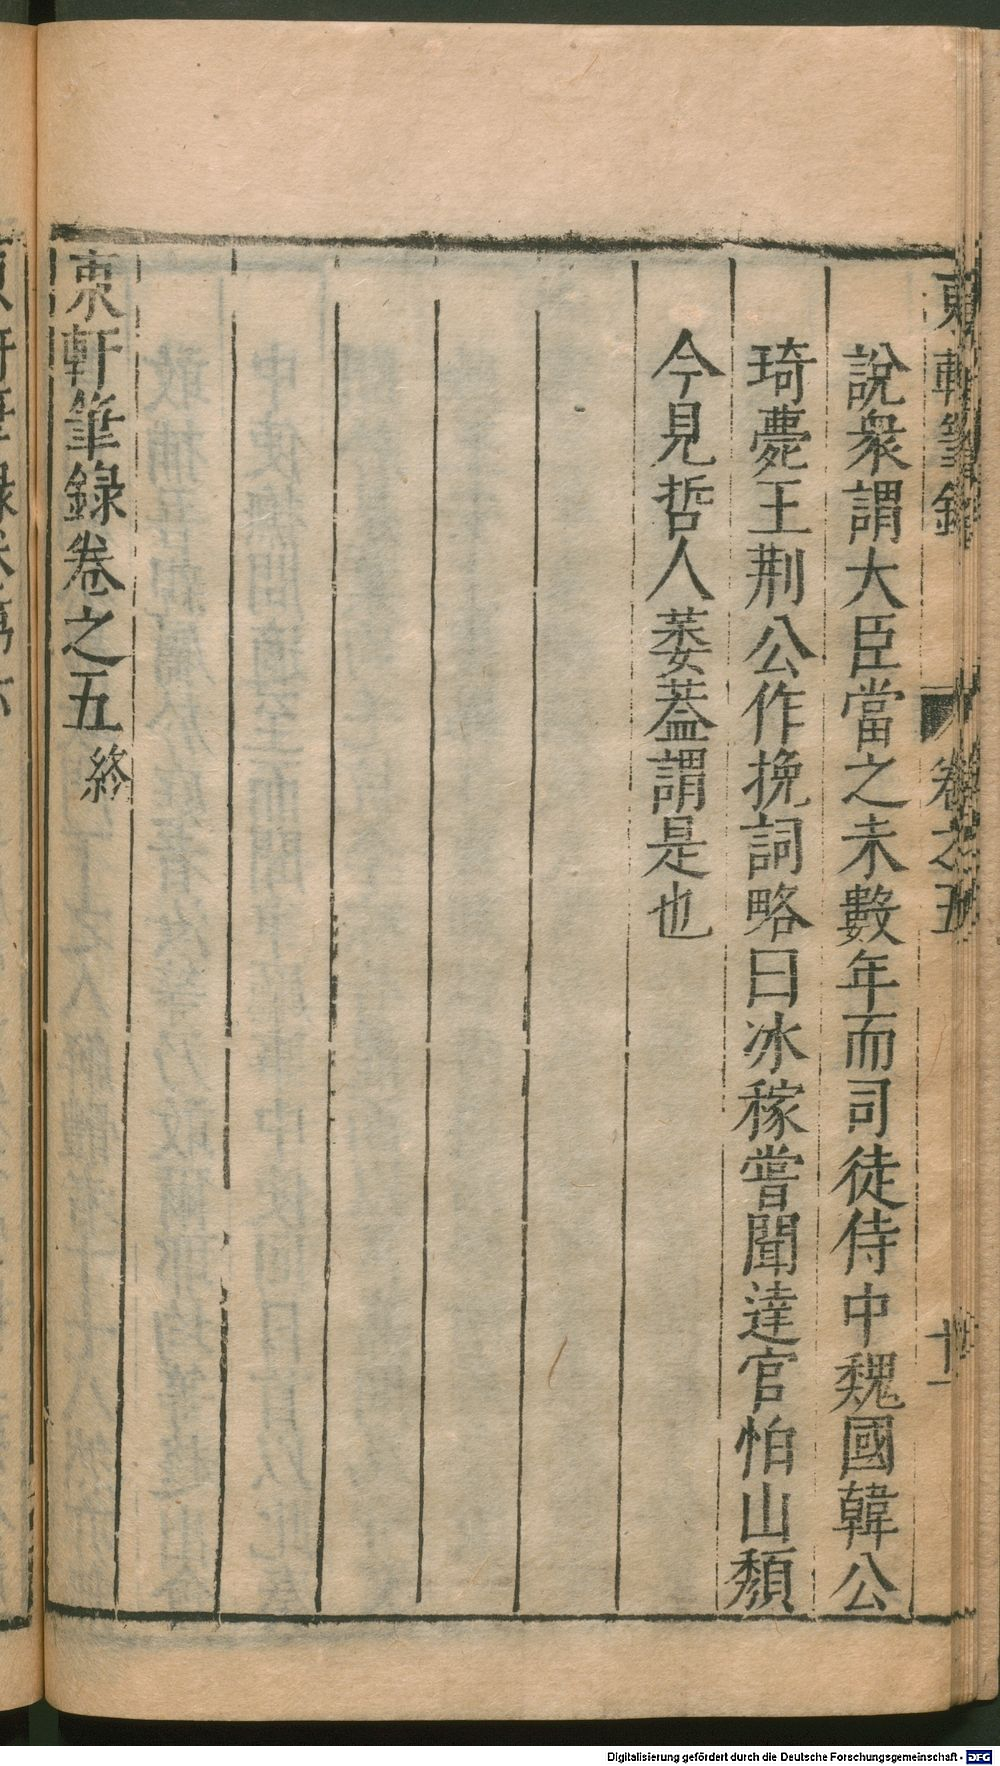 東軒筆錄
卷之五
廿一
說衆謂大臣當之未數年而司徒侍中魏國韓公
琦薨王荆公作挽詞略曰冰稼嘗聞達官怕山頹
今見哲人萎蓋謂是也
東軒筆録卷之五終
Digitalisierung gefördert durch die Deutsche Forschungsgemeinschaft - DFG